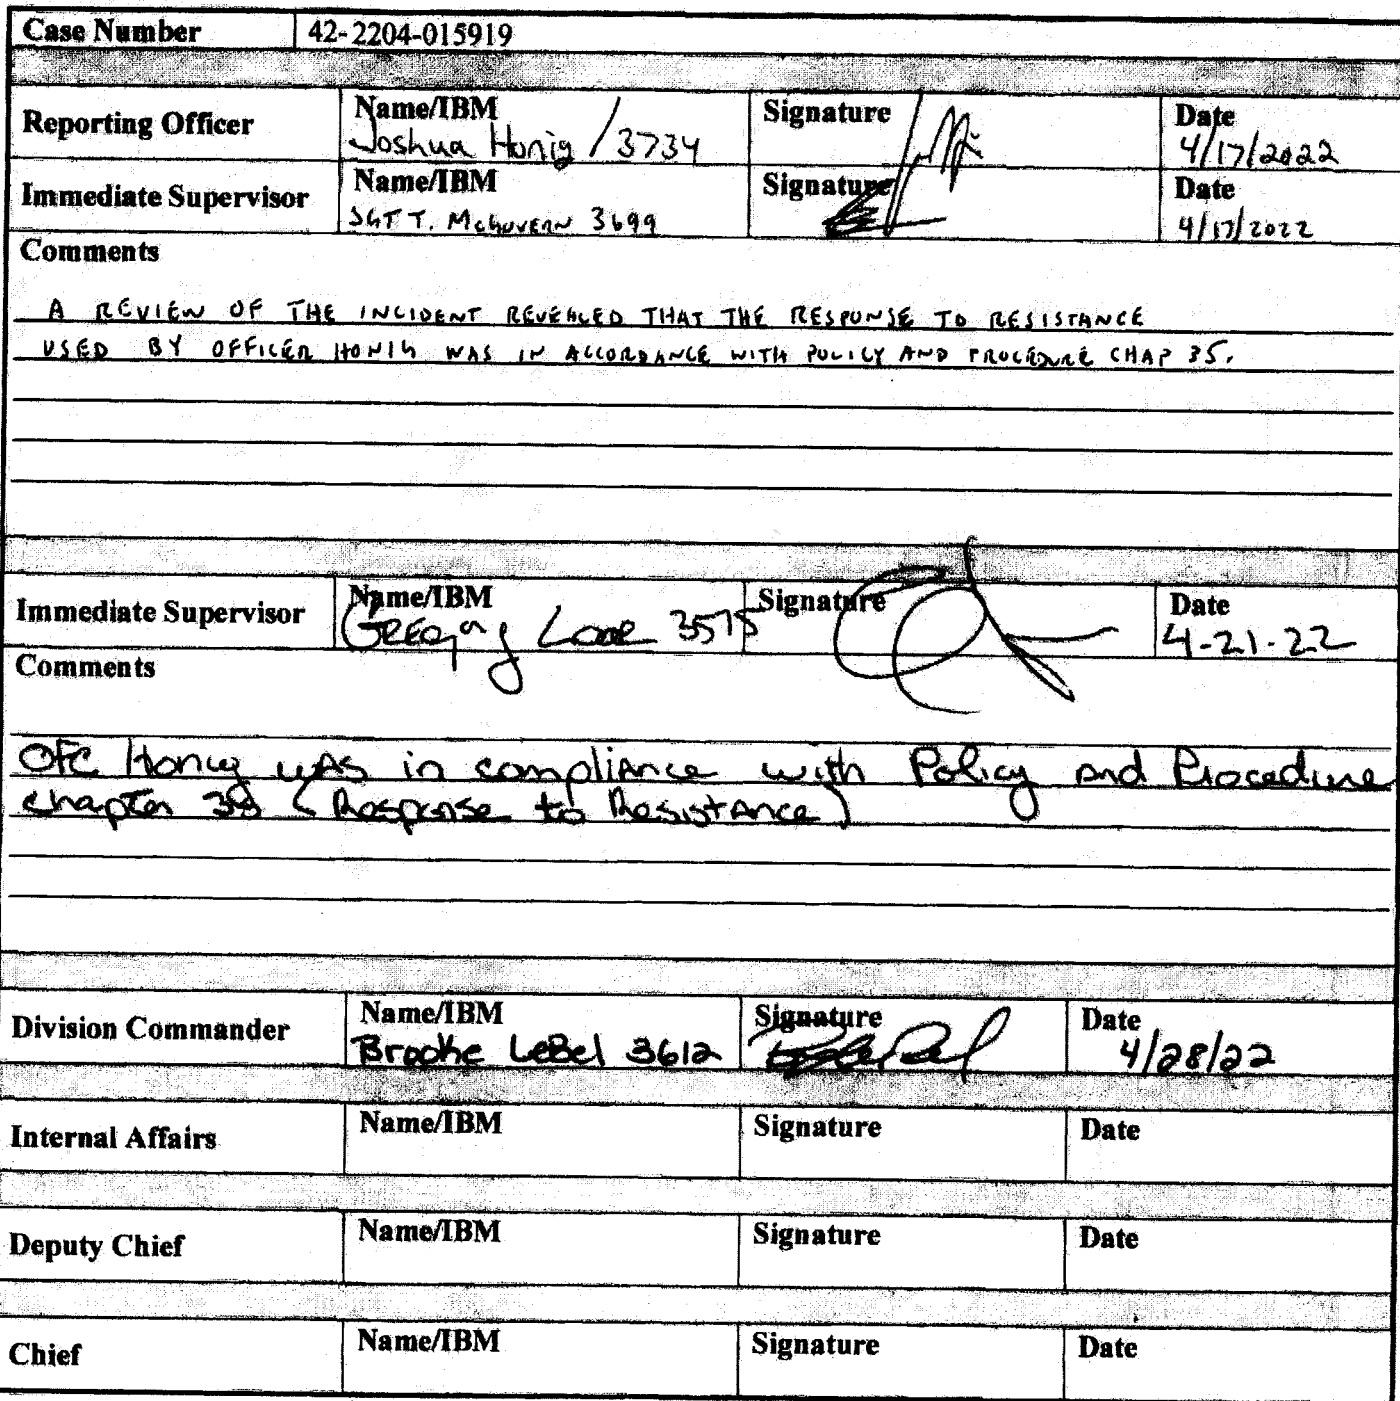 Case Number 42-2204-015919
Reporting Officer Name/IBM Signature Date
Joshua Honig / 3734 4/17/2022
Immediate Supervisor Name/IBM Signature Date
SGT T. McGovern 3699 4/17/2022
Comments
A REVIEW OF THE INCIDENT REVEALED THAT THE RESPONSE TO RESISTANCE
USED BY OFFICER HONIG WAS IN ACCORDANCE WITH POLICY AND PROCEDURE CHAP 35.
Immediate Supervisor Name/IBM Signature Date
Gregory 3575 4-21-22
Comments
OFC Honig was in compliance with Policy and Procedure
chapter (Response to Resistance)
Division Commander Name/IBM Signature Date
Brooke LeBel 3612 4/28/22
Internal Affairs Name/IBM Signature Date
Deputy Chief Name/IBM Signature Date
Chief Name/IBM Signature Date